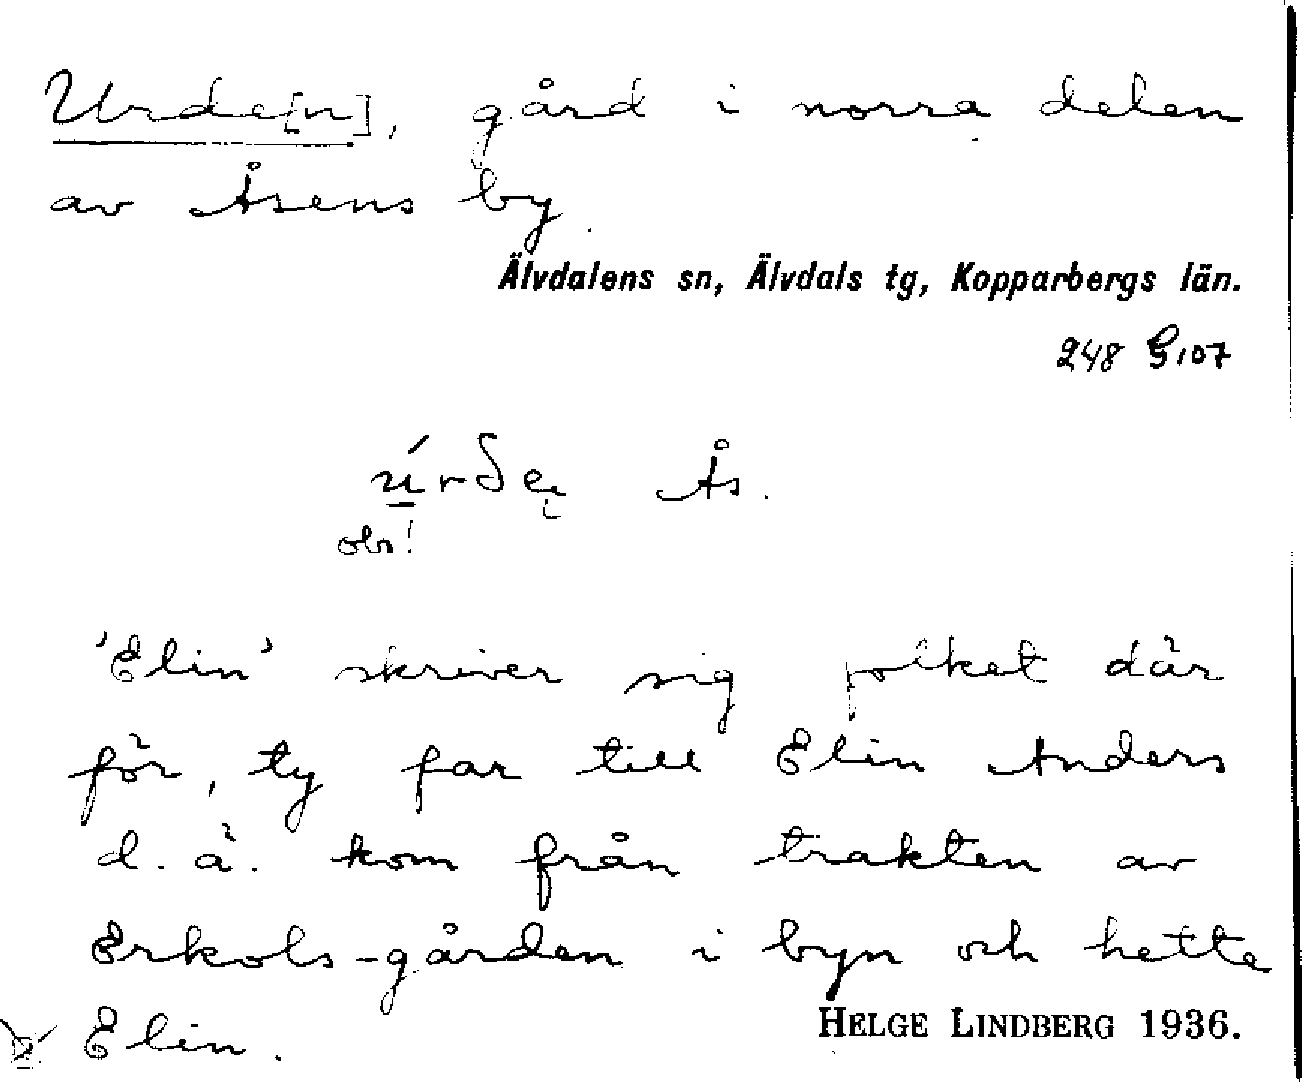 Urde[n], gård i norra delen
av Åsens by
Älvdalens sn, Älvdals tg, Kopparbergs län.
248 107
Ås.
obs!
'Elin' skriver sig folket där
för, ty far till Elin Anders
d. ä. kom från trakten av
Erkols-gården i byn och hette
Elin.
HELGE LINDBERG 1936.